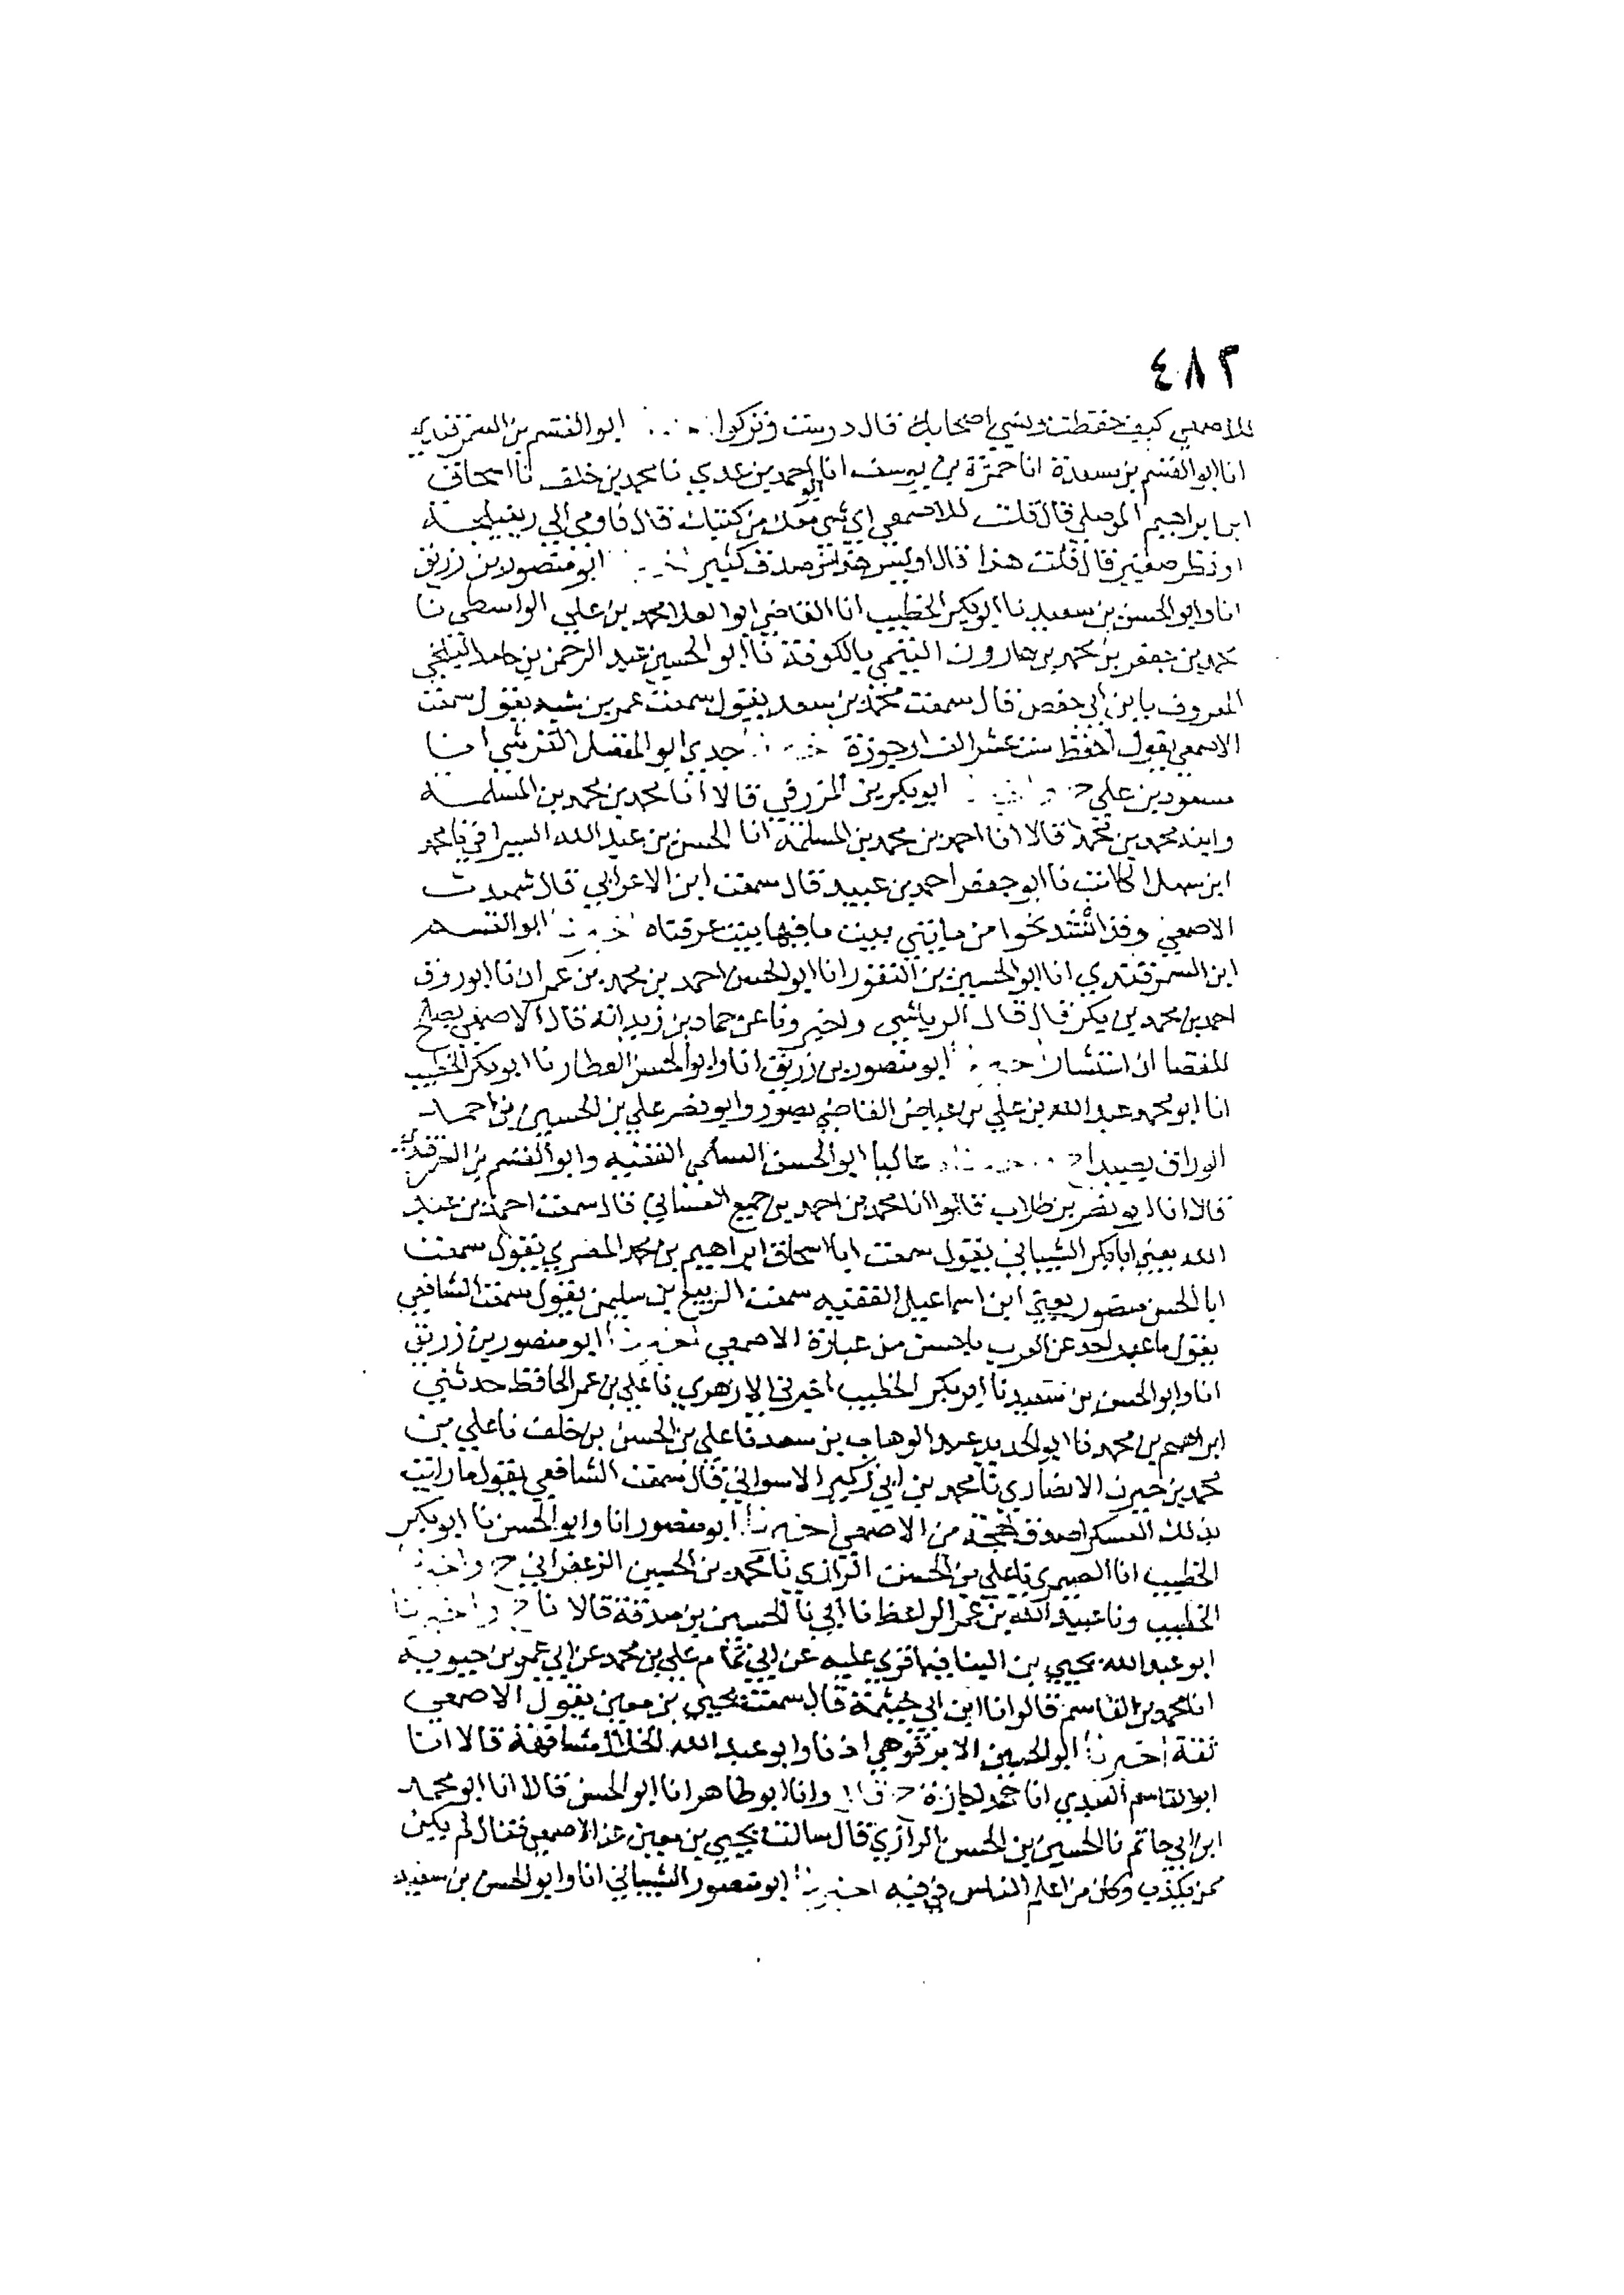 ٤٨٣
للاصمعي كيف حفظت ونسي اصحابك قال درست وتركوا ابو القسم بن السمرقندي
انا ابو القسم بن مسعدة انا حمزة بن يوسف انا ابو احمد بن عدي نا محمد بن خلف نا اسحاق
ابن ابراهيم الموصلي قال قلت للاصمعي اي شي معك من كتبك قال فاومى الى
او صغير قال قلت هذا قال اوليس هذا من صدق كثير ابو منصور بن زريق
انا وابو الحسن بن سعيد نا ابو بكر الخطيب انا القاضي ابو العلا محمد بن علي الواسطي نا
محمد بن جعفر بن محمد بن هارون التيمي بالكوفة نا ابو الحسين عبد الرحمن بن حامد البلخي
المعروف بابن ابي حفص قال سمعت محمد بن سعد يقول سمعت عمر بن شبه يقول سمعت
الاصمعي يقول احفظ ست عشر الف ارجوزة جدي ابو المفضل القرشي انا
مسعود بن علي ح ابو بكر بن المزرقي قالا انا محمد بن محمد بن المسلمة
وابنه محمد بن محمد قالا انا احمد بن محمد بن المسلمة انا الحسن بن عبد الله السيرافي نا محمد
ابن سهل الكاتب نا ابو جعفر احمد بن عبيد قال سمعت ابن الاعرابي قال شهدت
الاصمعي وقد انشد نحوا من مايتي بيت ما فيها بيت عرفناه ابو القسم
ابن السمرقندي انا ابو الحسين بن النقور انا ابو الحسن احمد بن محمد بن عمران نا ابو روق
احمد بن محمد بن بكر قال قال الرياشي واخبرونا عن حماد بن زيد انه قال الاصمعي يصلح
للقضا ان ابو منصور بن زريق انا وابو الحسن العطار نا ابو بكر الخطيب
انا ابو محمد عبد الله بن علي بن عياض القاضي بصور وابو نصر علي بن الحسين بن احمد
الوراق بصيدا ح عاليا ابو الحسن السلمي الفقيه وابو القسم بن السمرقندي
قالا انا ابو نصر بن طلاب قالوا انا محمد بن احمد بن جميع الغساني قال سمعت احمد بن عبد
الله يعني ابا بكر الشيباني يقول سمعت ابا اسحاق ابراهيم بن محمد المصري يقول سمعت
ابا الحسن منصور يعني ابن اسماعيل الفقيه سمعت الربيع بن سليمن يقول سمعت الشافعي
يقول ما عبر احد عن العرب باحسن من عبارة الاصمعي اخبرنا ابو منصور بن زريق
انا وابو الحسن بن سعيد نا ابو بكر الخطيب اخبرني الازهري نا علي بن عمر الحافظ حدثني
ابراهيم بن محمد نا ابو الحديد عبد الوهاب بن سعد نا علي بن الحسن بن خلف نا علي بن
محمد بن حيون الانصاري نا محمد بن ابي زكير الاسواني قال سمعت الشافعي يقول ما رايت
بذلك العسكر اصدق لهجة من الاصمعي اخبرنا ابو منصور انا وابو الحسن نا ابو بكر
الخطيب انا الصيمري نا علي بن الحسن الرازي نا محمد بن الحسين الزعفراني ح واخبرنا
الخطيب ونا عبيد الله بن عمر الواعظ نا ابي نا الحسين بن صدقة قالا نا ح واخبرنا
ابو عبد الله يحيي بن البنا فيما قري عليه عن ابي تمام علي بن محمد عن ابي عمر بن حيوية
انا محمد بن القاسم قالوا انا ابن ابي خيثمة قال سمعت يحيى بن معين يقول الاصمعي
ثقة اخبرنا ابو الحسين الابرقوهي اذنا وابو عبد الله الخلال مشافهة قالا انا
ابو القاسم العبدي انا حمد اجازة ح قال وانا ابو طاهر انا ابو الحسن قالا انا ابو محمد
ابن ابي حاتم نا الحسين بن الحسن الرازي قال سالت يحيي بن معين عن الاصمعي فقال لم يكن
ممن يكذب وكان من اعلم الناس في فنه اخبرنا ابو منصور الشيباني انا وابو الحسن بن سعيد